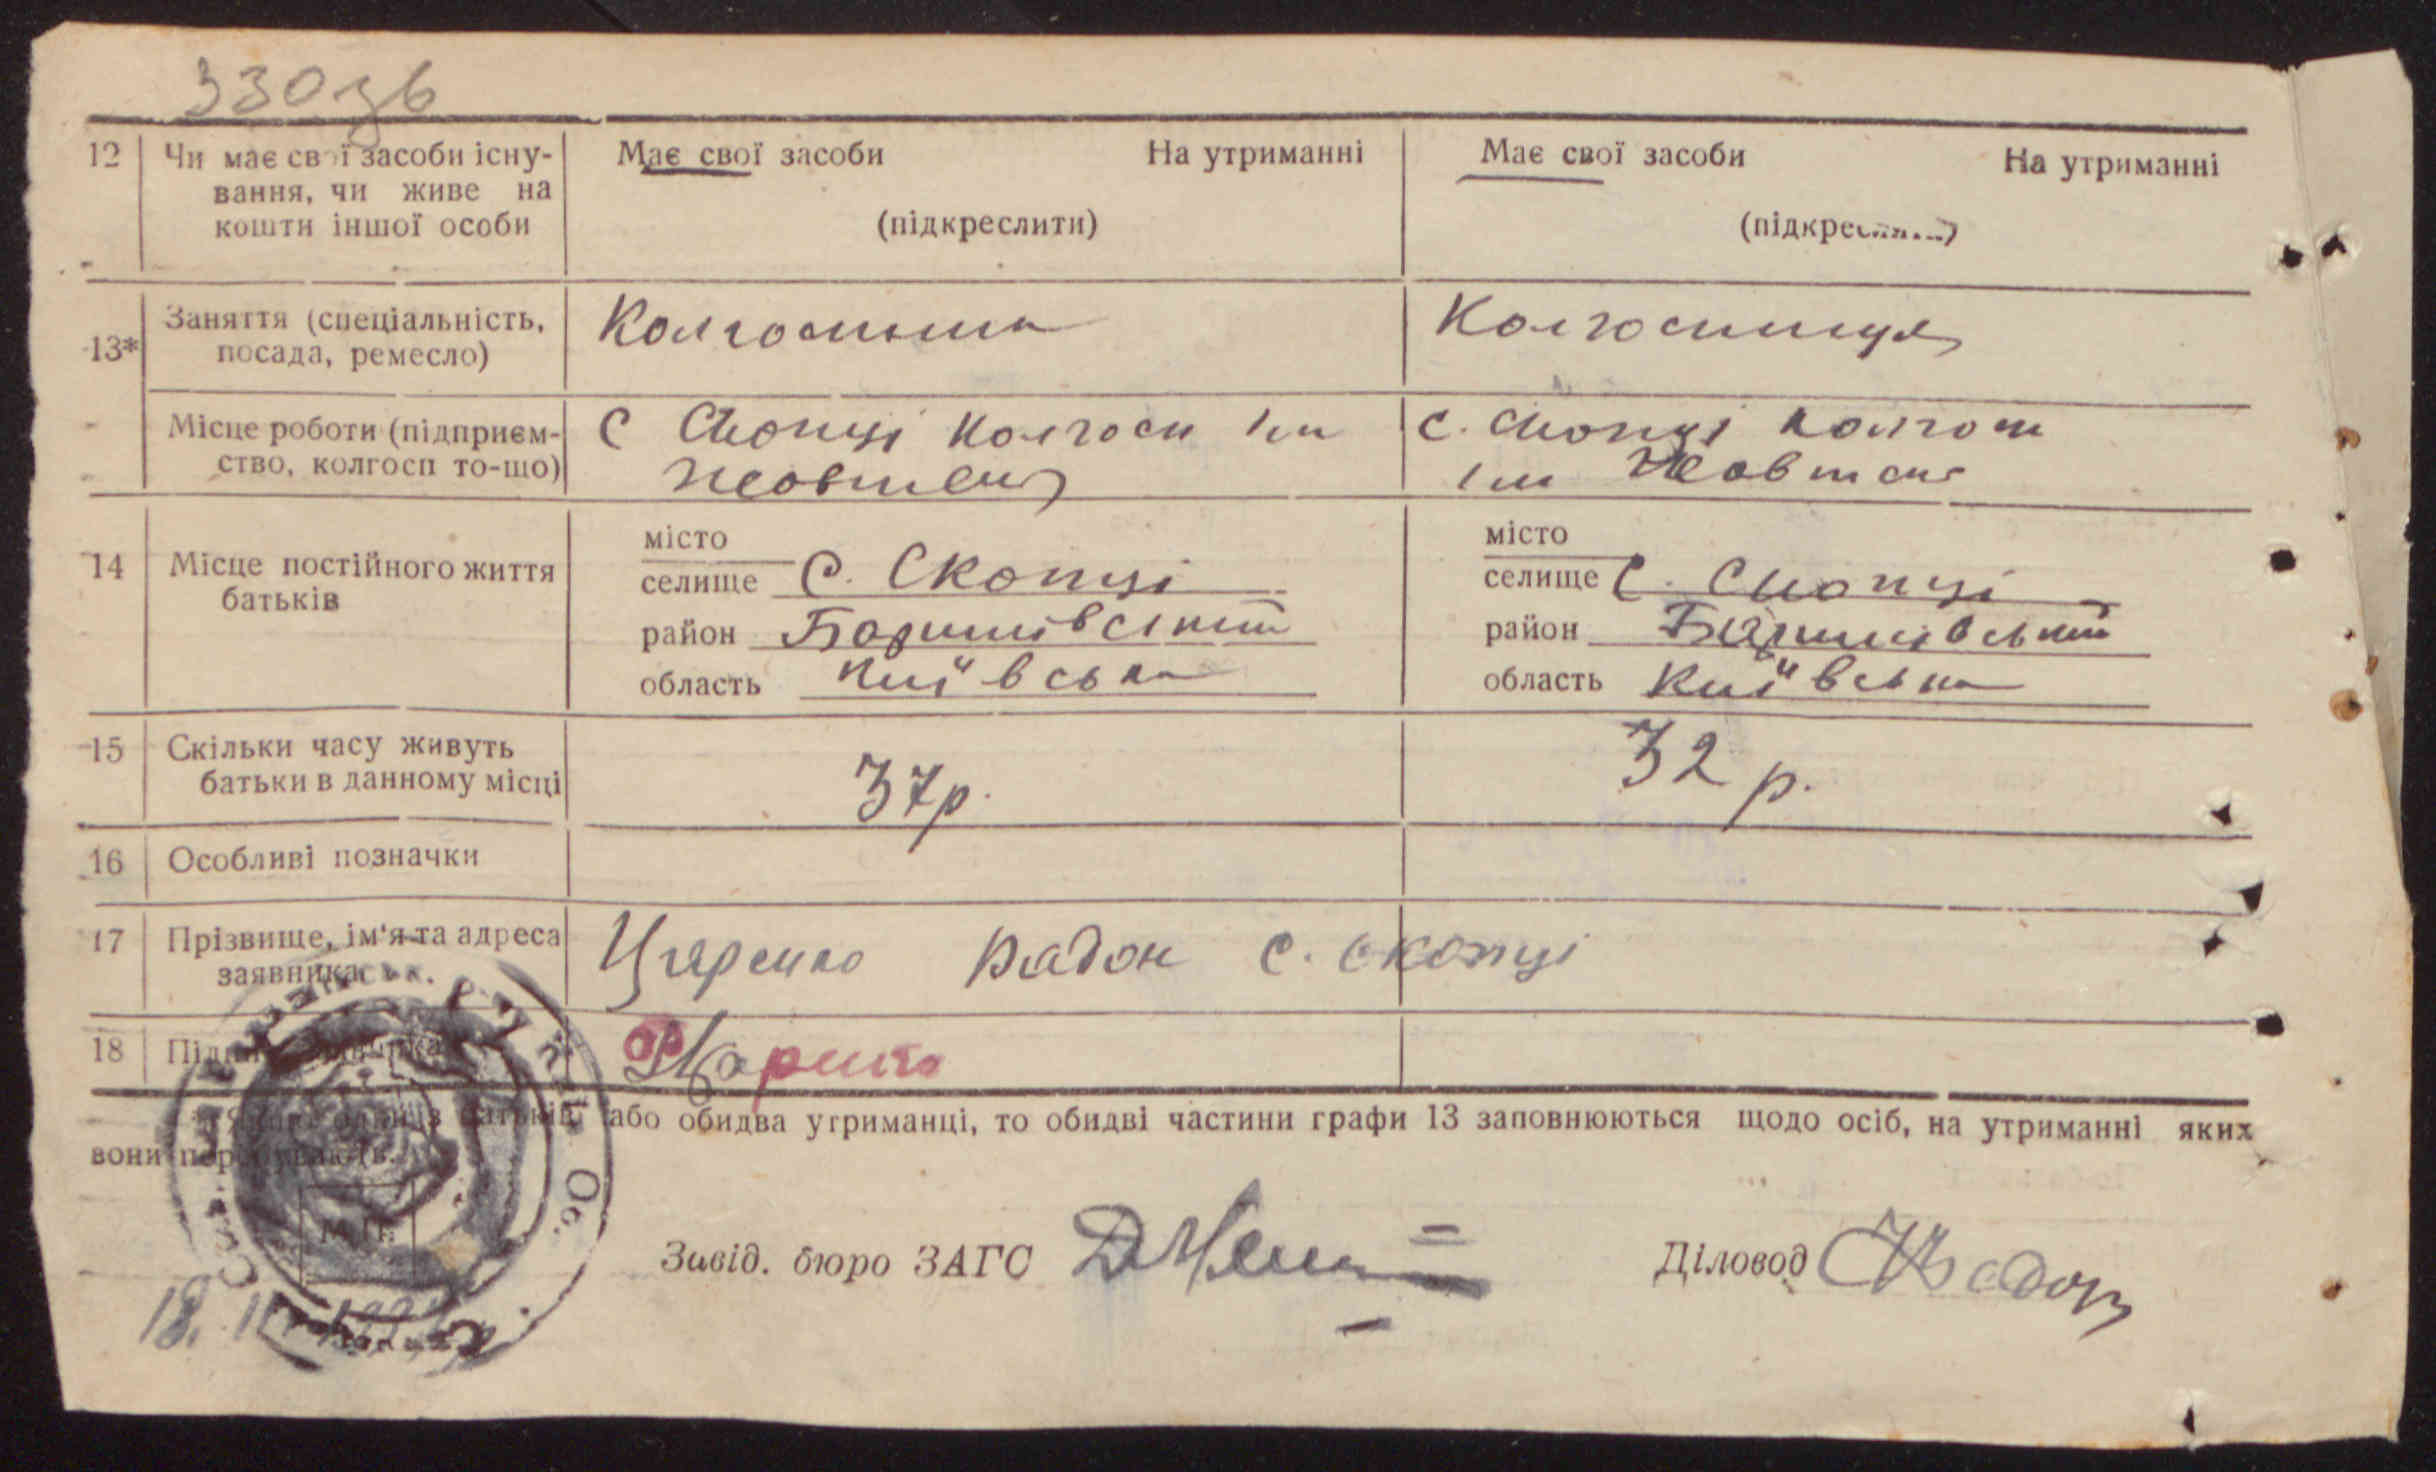 12 Чи має свої засоби існу-
вання, чи живе на
кошти іншої особи
Має свої засоби На утриманні
(підкреслити)
Має свої засоби На утриманні
13* Заняття (спеціальність,
посада, ремесло)
Колгоспник
Колгоспниця
Місце роботи (підприєм-
ство, колгосп то-що)
С Скопці Колгосп Ім
Жовтень
С. Скопці колгосп
Ім Жовтень
14 Місце постійного життя
батьків
місто
селище С. Скопці
район Баришівський
область Київська
місто
селище С. Скопці
район Баришівський
область Київська
15 Скільки часу живуть
батьки в данному місці
37р.
32 р.
16 Особливі позначки
17 Прізвище, ім'я та адреса
заявника
Царенко Радон с. Скопці
18
або обидва утриманці, то обидві частини графи 13 заповнюються щодо осіб, на утриманні яких
вони перебувають.
М.П.
Завід. бюро ЗАГС
Діловод